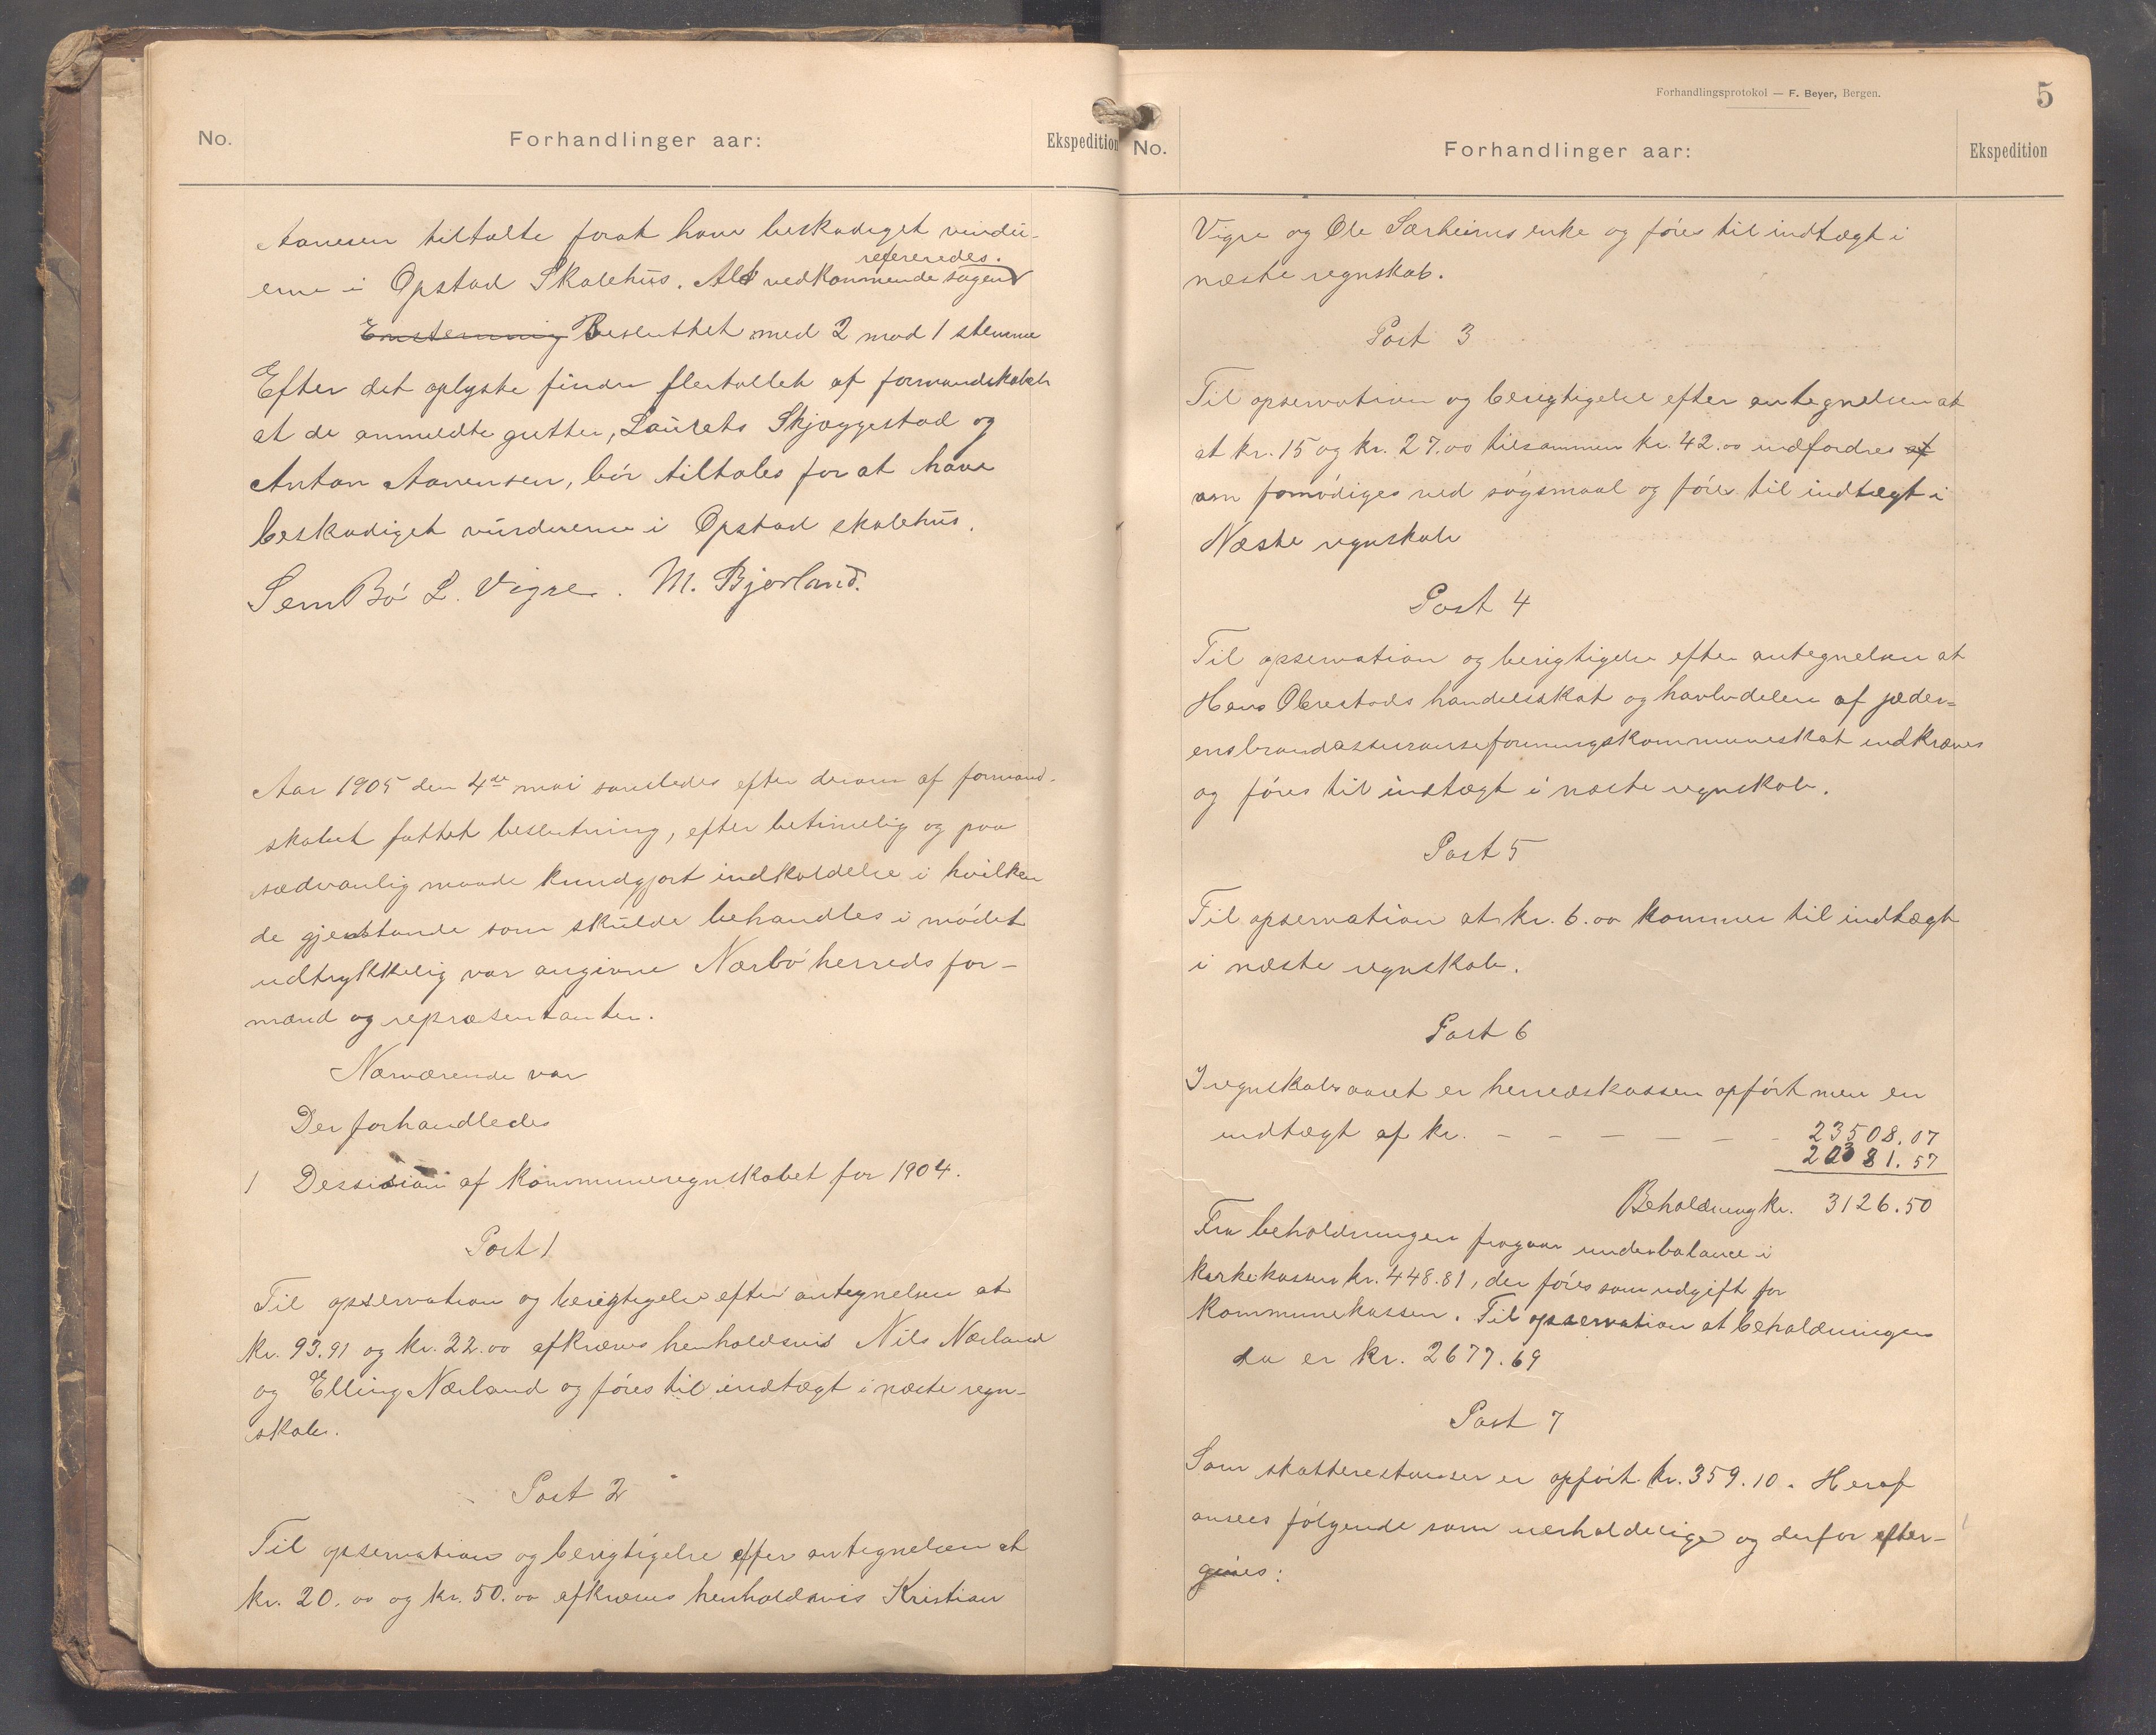 No.
Forhandlinger aar:
Ekspedition
Aanesen tiltalte forat have beskadiget vindu-
refereredes.
erne i Opstad Skolehus. Alt vedkommende sagen
Enstemmig Besluttet med 2 mod 1 stemme
Efter det oplyste finder flertallet af formandskabet
at de anmeldte gutter, Laurets Skjæggestad og
Anton Aanensen, bør tiltales for at have
beskadiget vinduerne i Opstad skolehus.
Sem Bø L. Vigre. M. Bjorland.
Aar 1905 den 4de mai samledes efter derom af formand-
skabet fattet beslutning, efter betimelig og paa
sædvanlig maade kundgjort indkaldelse i hvilken
de gjenstande som skulde behandles i mødet
udtrykkelig var angivne Nærbø herreds for-
mænd og repræsentanter.
Nærværende var
Der forhandledes
1 Dessision af kommuneregnskabet for 1904.
Post 1
Til opservation og berigtigelse efter antegnelsen at
kr. 93.91 og kr. 22.00 afkræves henholdsvis Nils Nærland
og Elling Nærland og føres til indtægt i næste regn-
skab.
Post 2
Til opservation og berigtigelse efter antegnelsen at
kr. 20.00 og kr. 50.00 afkræves henholdsvis Kristian
Forhandlingsprotokol — F. Beyer, Bergen.
5
No.
Forhandlinger aar:
Ekspedition
Vigre og Ole Særheims enke og føres til indtægt i
næste regnskab.
Post 3
Til opservation og berigtigelse efter antegnelsen at
at kr. 15 og kr. 27.00 tilsammen kr. 42.00 indfordres af
om fornødiges ved søgsmaal og føres til indtægt i
Næste regnskab
Post 4
Til opservation og berigtigelse efter antegnelsen at
Hans Obrestads handelsskat og halvdelen af jæder-
ens brandassuranseforeningskommuneskat indkræves
og føres til indtægt i næste regnskab.
Post 5
Til opservation at kr. 6.00 kommer til indtægt
i næste regnskab.
Post 6
I regnskabsaaret er herredskassen opført men en
indtægt af kr. – – – – – – 23508.07
20381.57
Beholdning kr. 3126.50
Fra beholdningen fragaar underbalance i
kirkekassen kr. 448.81, der føres som udgift for
kommunekassen. Til opservation at beholdningen
da er kr. 2677.69
Post 7
Som skatterestanser er opført kr. 359.10. Heraf
ansees følgende som uerholdelige og derfor efter-
gives: